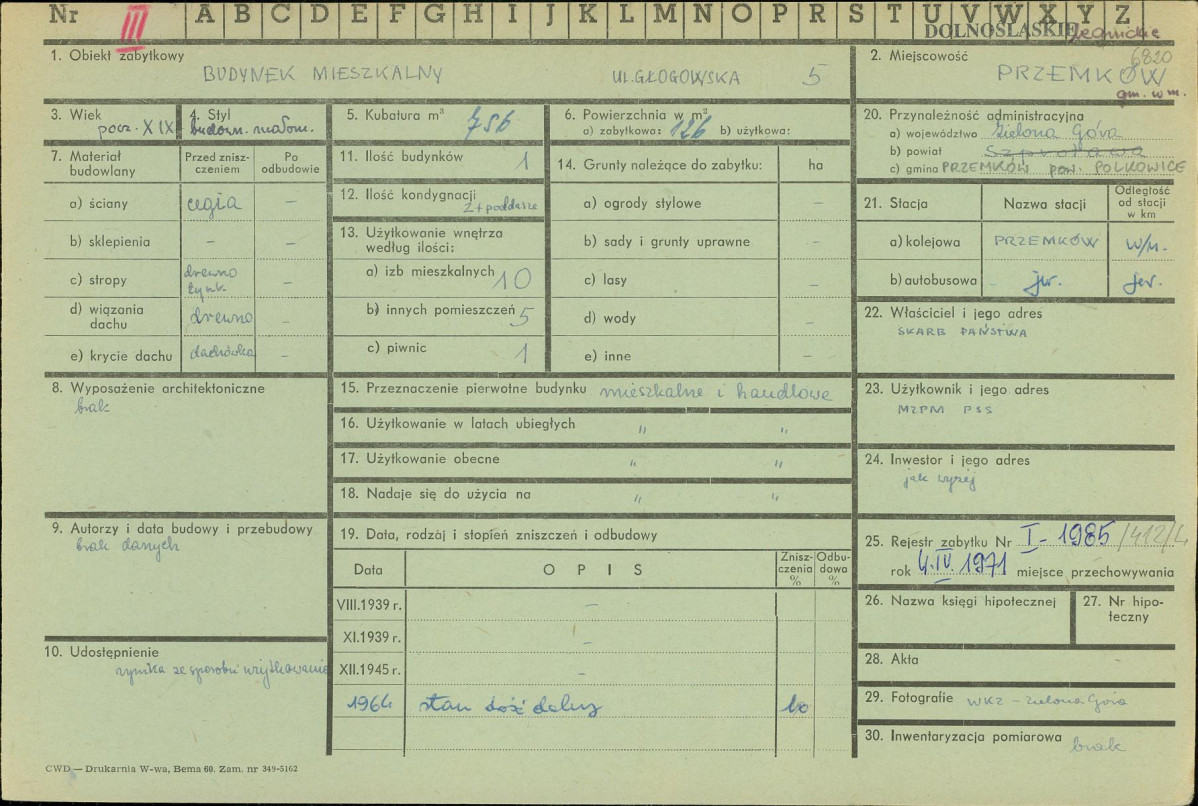 Nr III A B C D E F G H I J K L M N O P R S T U V W X Y Z
DOLNOŚLĄSKIE legnickie
1. Obiekt zabytkowy
BUDYNEK MIESZKALNY UL. GŁOGOWSKA 5
2. Miejscowość 6820
PRZEMKÓW
gm. w m.
3. Wiek
pocz. XIX
4. Styl
budown. małom.
5. Kubatura m³ 756
6. Powierzchnia w m²
a) zabytkowa: 126 b) użytkowa:
7. Materiał budowlany
Przed zniszczeniem
Po odbudowie
a) ściany cegła –
b) sklepienia – –
c) stropy drewno tynk. –
d) wiązania dachu drewno –
e) krycie dachu dachówka –
8. Wyposażenie architektoniczne
brak
9. Autorzy i data budowy i przebudowy
brak danych
10. Udostępnienie
wynika ze sposobu użytkowania
11. Ilość budynków 1
12. Ilość kondygnacji
2 + poddasze
13. Użytkowanie wnętrza
według ilości:
a) izb mieszkalnych 10
b) innych pomieszczeń 5
c) piwnic 1
14. Grunty należące do zabytku: ha
a) ogrody stylowe –
b) sady i grunty uprawne –
c) lasy –
d) wody –
e) inne –
15. Przeznaczenie pierwotne budynku mieszkalne i handlowe
16. Użytkowanie w latach ubiegłych " "
17. Użytkowanie obecne " "
18. Nadaje się do użycia na " "
19. Data, rodzaj i stopień zniszczeń i odbudowy
Data OPIS Zniszczenia % Odbudowa %
VIII.1939 r. –
XI.1939 r. –
XII.1945 r. –
1964 stan dość dobry 10
20. Przynależność administracyjna
a) województwo Zielona Góra
b) powiat Szprotawa
c) gmina PRZEMKÓW pow. POLKOWICE
21. Stacja Nazwa stacji Odległość od stacji w km
a) kolejowa PRZEMKÓW w/m.
b) autobusowa jw. jw.
22. Właściciel i jego adres
SKARB PAŃSTWA
23. Użytkownik i jego adres
MZPM PSS
24. Inwestor i jego adres
jak wyżej
25. Rejestr zabytku Nr I-1985/412/L
rok 4.IV.1971 miejsce przechowywania
26. Nazwa księgi hipotecznej
27. Nr hipoteczny
28. Akta
29. Fotografie WKZ – Zielona Góra
30. Inwentaryzacja pomiarowa brak
CWD — Drukarnia W-wa, Bema 60. Zam. nr 349-5162